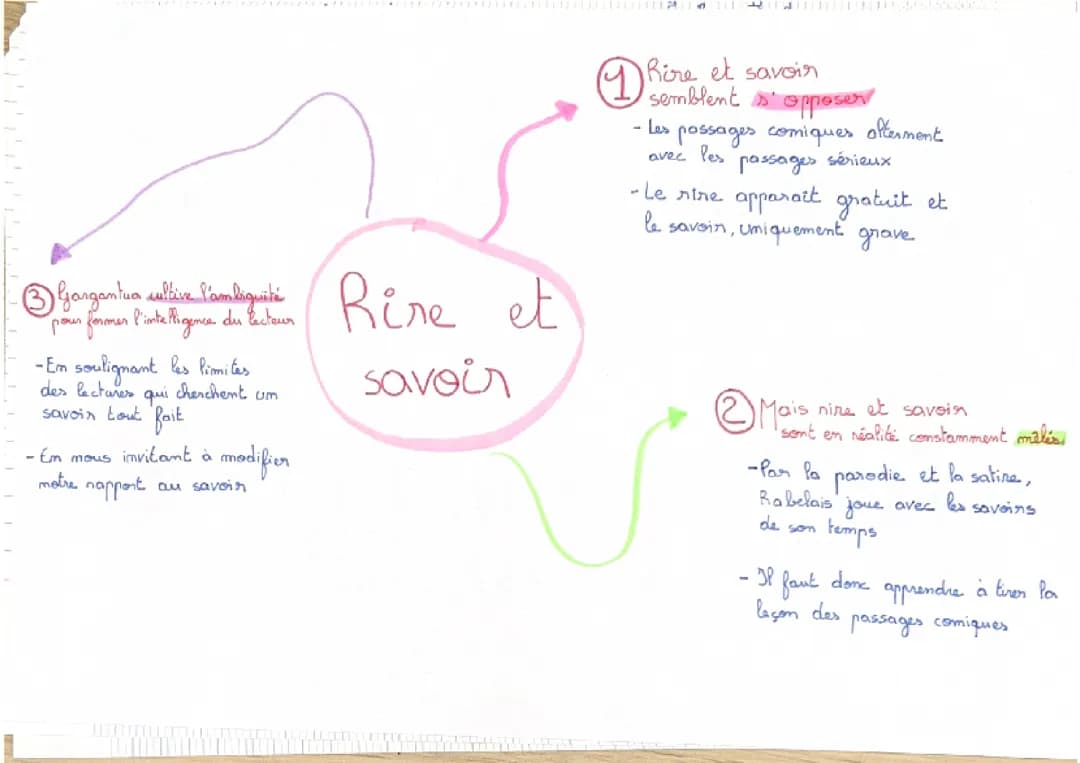 Rire et
savoir
① Rire et savoir
semblent s'opposer
- Les passages comiques alternent
avec les passages sérieux
- Le rire apparaît gratuit et
le savoir, uniquement grave
② Mais rire et savoir
sont en réalité constamment mêlés
- Par la parodie et la satire,
Rabelais joue avec les savoirs
de son temps
- Il faut donc apprendre à tirer la
leçon des passages comiques
③ Gargantua cultive l'ambiguité
pour former l'intelligence du lecteur
- En soulignant les limites
des lectures qui cherchent un
savoir tout fait
- En nous invitant à modifier
notre rapport au savoir